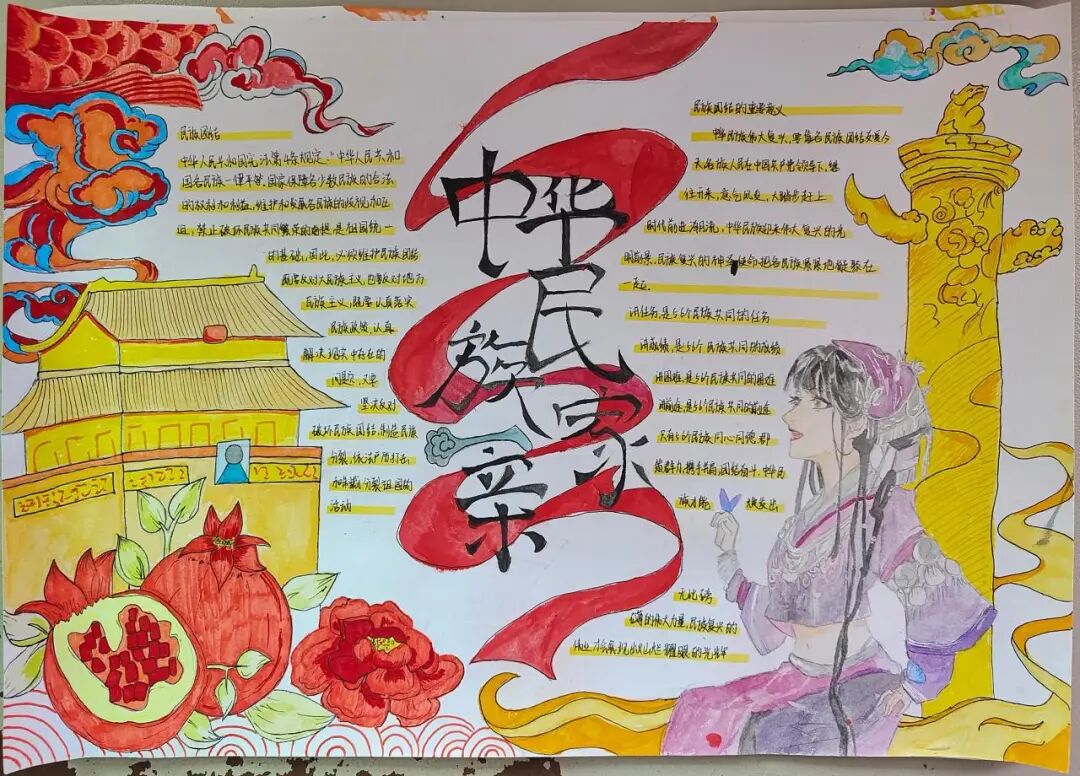 民族团结
中华人民共和国宪法第4条规定："中华人民共和
国各民族一律平等，国家保障各少数民族的合法
的权利和利益，维护和发展各民族的
禁止破坏民族
是祖国统一
的基础，因此，必须维护民族团结
既要反对大民族主义，也要反对地方
民族主义，既要认真落实
民族政策，认真
解决现实中存在的
问题，又要
坚决反对
破坏民族团结，制造民族
分裂，依法严厉打击
分裂祖国的
活动
中华
民
族
家
亲
民族团结的重要意义
中华民族伟大复兴，需各民族团结
各族人民在中国共产党的领导下，继
往开来，意气风发，大踏步赶上
时代前进
中华民族迎来伟大复兴的光
明前景，民族复兴的神圣使命把各民族紧紧地凝聚在
一起，
讲任务，是56个民族共同的任务
讲成绩，是56个民族共同的成绩
讲困难，是56个民族共同的困难
讲前途，是56个民族共同的前途
只有56个民族同心同德，群
策群力，携手共前，团结奋斗，中华民
族才能
焕发出
无比磅
礴的伟大力量，民族复兴的
伟业才能展现出灿烂耀眼的光辉